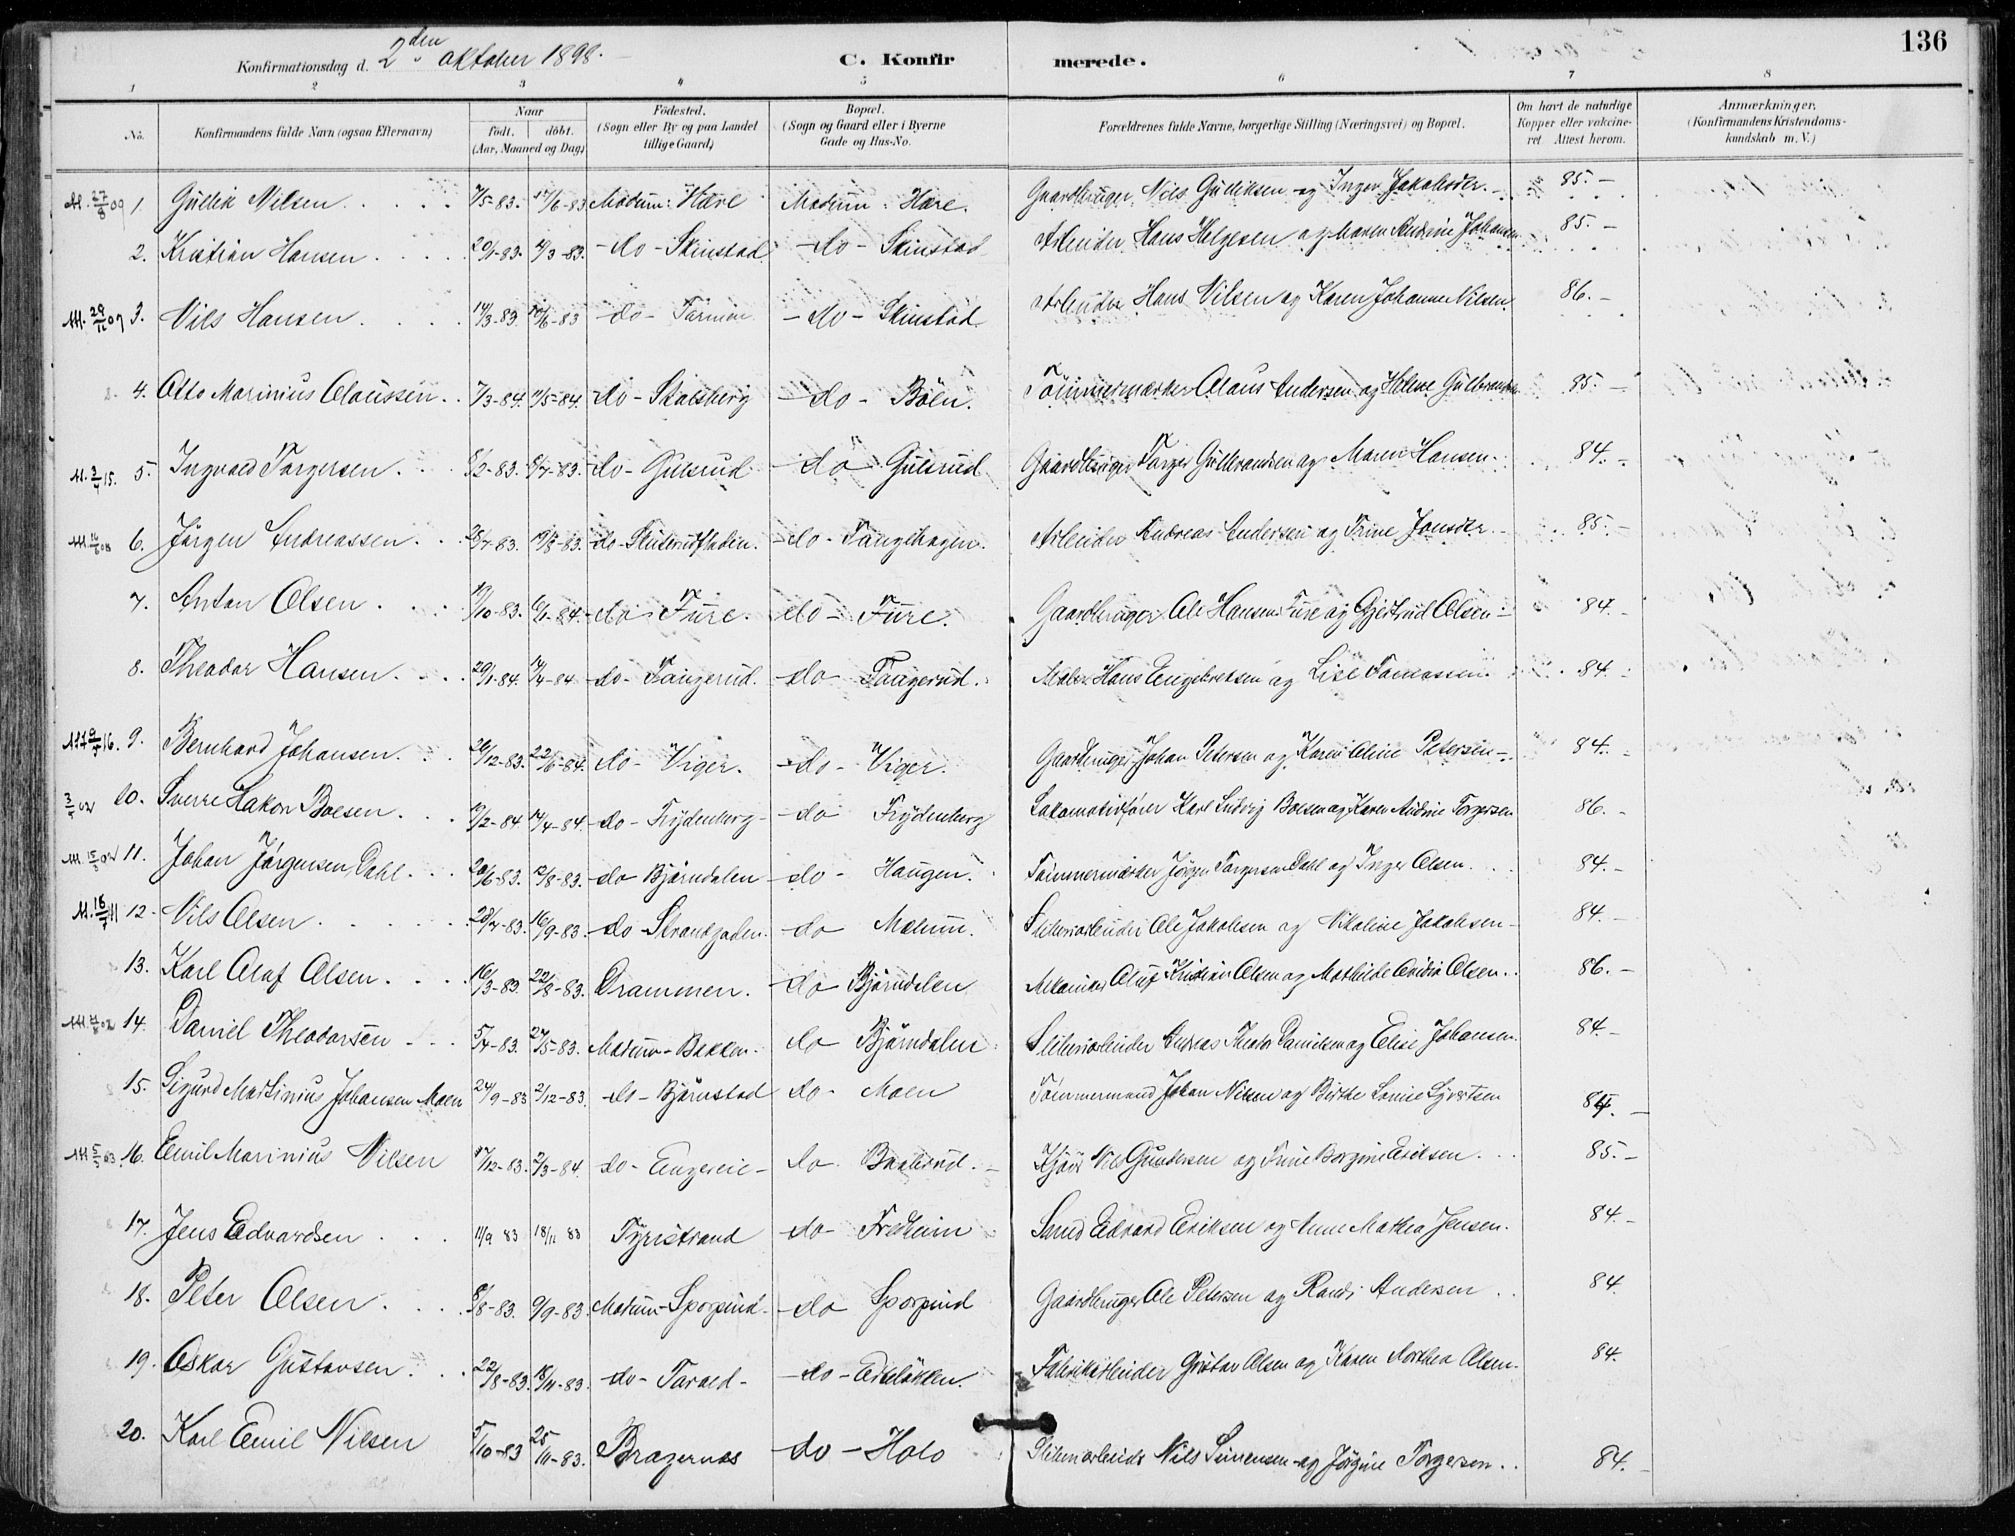 136
Konfirmationsdag d. 2den oktober 1898.
C. Konfirmerede.
1 2 3 4 5 6 7 8
No.
Konfirmandens fulde Navn (ogsaa Efternavn)
Naar
født. døbt.
(Aar, Maaned og Dag)
Fødested.
(Sogn eller By og paa Landet
tillige Gaard)
Bopæl.
(Sogn og Gaard eller i Byerne
Gade og Hus-No.
Forældrenes fulde Navne, borgerlige Stilling (Næringsvei) og Bopæl.
Om havt de naturlige
Kopper eller vaccine-
ret Attest herom.
Anmærkninger.
(Konfirmandens Kristendoms-
kundskab m. V.)
1. Gullik Nilsen 7/5-83. 17/6-83 Modum: Hære Modum: Hære. Gaardbruger Nils Gulliksen og Inger Jakobsdtr. 85.-
2. Kristian Hansen 20/1-83. 4/3-83. -do- Skinstad -do- Skinstad Arbeider Hans Helgesen og Maren Andrine Johansen 85.-
3. Nils Hansen 14/3-83. -do- -do- Skinstad Arbeider Hans Nilsen og Karen Johanne Nilsen. 86.-
4. Otto Marinius Claussen 7/3-84. 11/5-84. -do- Stalsberg -do- Böen. Tömmermærker Claus Andersen og Helene Gulbrandsen 85.-
5. Ingvald Torgersen 8/2-83. 8/4-83. do- Gulsrud do Gulsrud Gaardbruger Torger Gulbrandsen og Maren Hansen. 84.-
6. Jörgen Andreassen 28/4-83. 19/8-83. do- -do- Tangehagen. Arbeider Andreas Andersen og Trine Jonsdtr. 85.-
7. Anton Olsen 19/10-83. 6/1-84. -do- Fure. -do- Fure. Gaardbruger Ole Hansen Fure og Gjertrud Olsen 84.-
8. Theodor Hansen 20/1-84. 14/4-84 do- Taugerud. -do Taagerud. Maler Hans Engebretsen og Lise Tomassen. 84.-
9. Bernhard Johansen. 26/12-83. 22/6-84. do- Viger. -do- Viger. Gaardbruger Johan Petersen og Karen Oline Petersen 84.-
10. Sverre Hakon Boesen. 19/2-84. 14/4-84. -do- Frydenberg -do Frydenberg Lokomotivförer Karl Ludvig Boesen og Karen Andrine Torgersen 86.-
11. Johan Jörgensen Dahl. 20/6-83. 12/8-83. -do Bjørndalen -do- Haugen. Tömmermærker Jörgen Torgersen Dahl og Inger Olsen. 84.-
12. Nils Olsen 28/7-83. 16/9-83. do- Strandgaden. -do Modum. Sliberiarbeider Ole Jakobsen og Nikoline Jakobsen 84.-
13. Karl Olaf Olsen. 16/3-83. 22/8-83. Drammen. do Bjørndalen Mekaniker Oluf Kristian Olsen og Mathilde Ovidia Olsen. 86.-
14. Daniel Theodorsen 5/4-83. 27/5-83. Modum- Bakken. do Bjørndalen Sliberiarbeider Andreas Theodor Danielsen og Elise Johansen. 84.-
15. Sigurd Martinius Johansen Moen 24/9-83 2/12-83. do- Bjørnstad do- Moen Tömmermand Johan Nilsen og Birthe Lovise Syvertsen 84.-
16. Emil Marinius Nilsen 17/12-83. 2/3-84. do- Engereie- do- Kjører Nils Gundersen og Trine Borgine Eriksen. 85.-
17. Jens Edvardsen 11/9 83 18/11 83 Tyristrand do- Fredheim Smed Edvard Eriksen og Anne Mathea Jensen. 84.-
18. Peter Olsen 8/8-83. 9/9-83. Modum- Sporpind -do Sporpind Gaardbruger Ole Petersen og Randi Andersen 84.
19. Oskar Gustavsen 22/8-83. 18/11-83. do- -do- Fabrikarbeider Gustav Olsen og Karen Dorthea Olsen. 84.
20. Karl Emil Nilsen 5/10-83 25/11-83. Bragernæs do- Holo Sliberiarbeider Nils Simensen og Jørgine Torgersen. 84.-